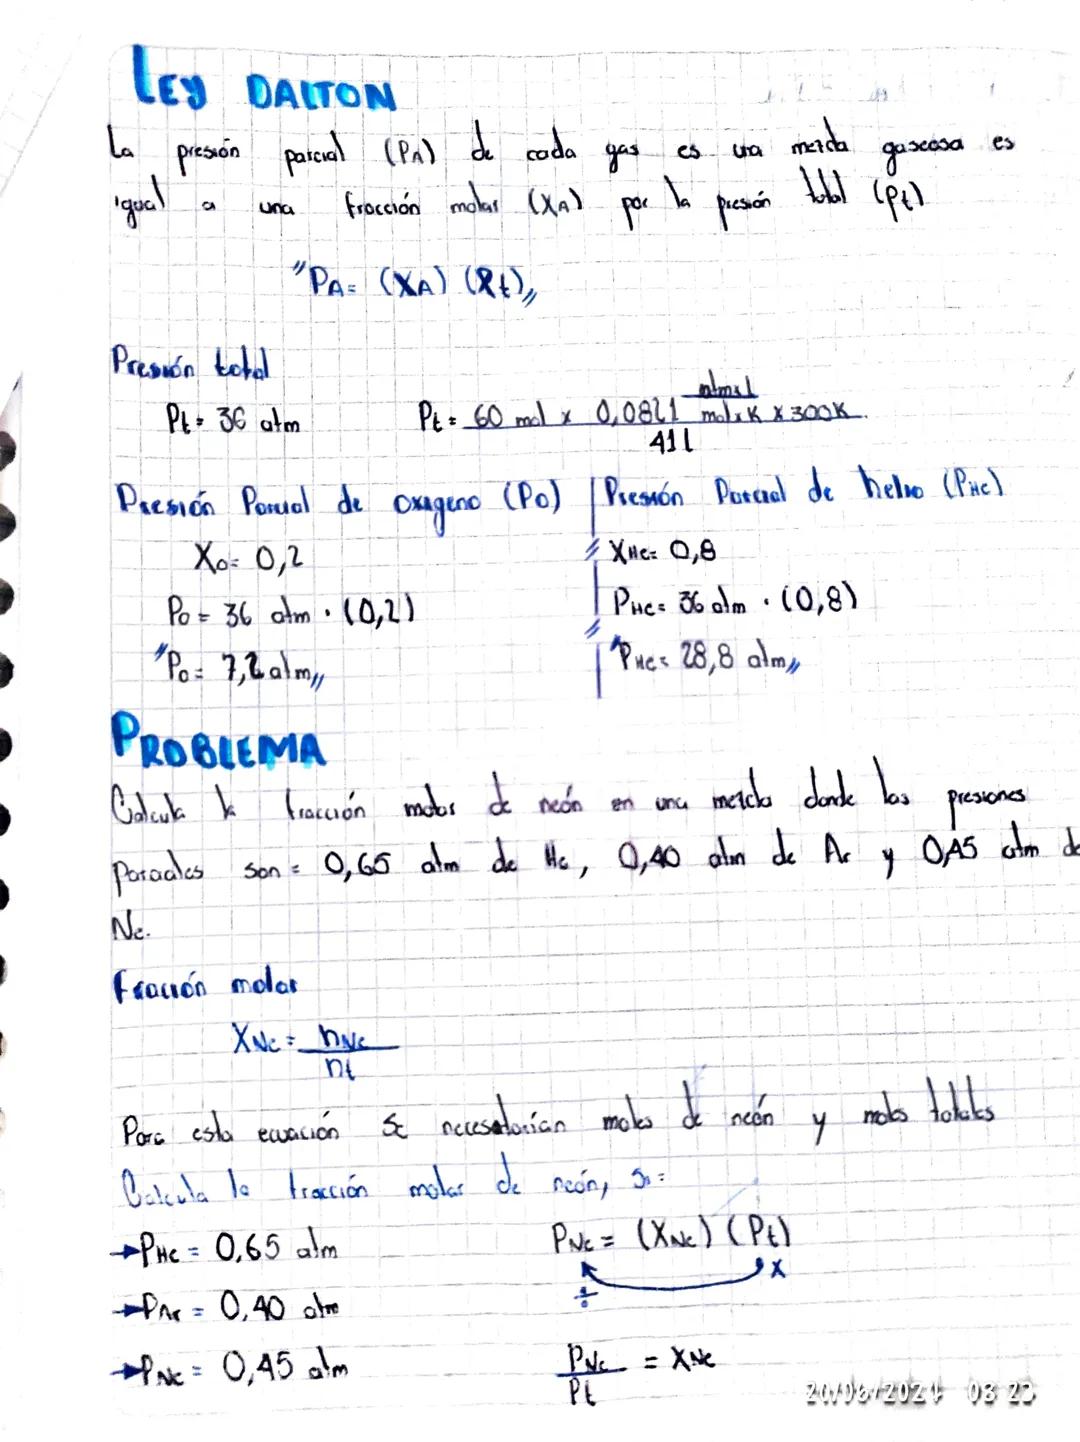 LEY DALTON
La presión parcial (PA) de cada gas es una mezcla gaseosa es
igual a una fracción molar (XA) por la presión total (Pt)
"PA= (XA) (Pt)"
Presión total
Pt= 36 atm
Pt= 60 mol x 0,0821 atmxl / molxK x 300K
41 l
Presión Parcial de oxigeno (Po)
Xo= 0,2
Po = 36 atm · (0,2)
"Po= 7,2 atm"
Presión Parcial de helio (PHe)
XHe= 0,8
PHe= 36 atm · (0,8)
"PHe= 28,8 atm"
PROBLEMA
Calcula la fracción molar de neón en una mezcla donde las presiones
Parciales son = 0,65 atm de He, 0,40 atm de Ar y 0,45 atm de
Ne.
fracción molar
XNe = nNe
nt
Para esta ecuación se necesitarían moles de neón y moles totales
Calcula la fracción molar de neón, si =
→PHe = 0,65 atm
→PAr = 0,40 atm
→PNe = 0,45 atm
PNe = (XNe) (Pt)
÷ x
PNe = XNe
Pt
20/06/2024 08 23